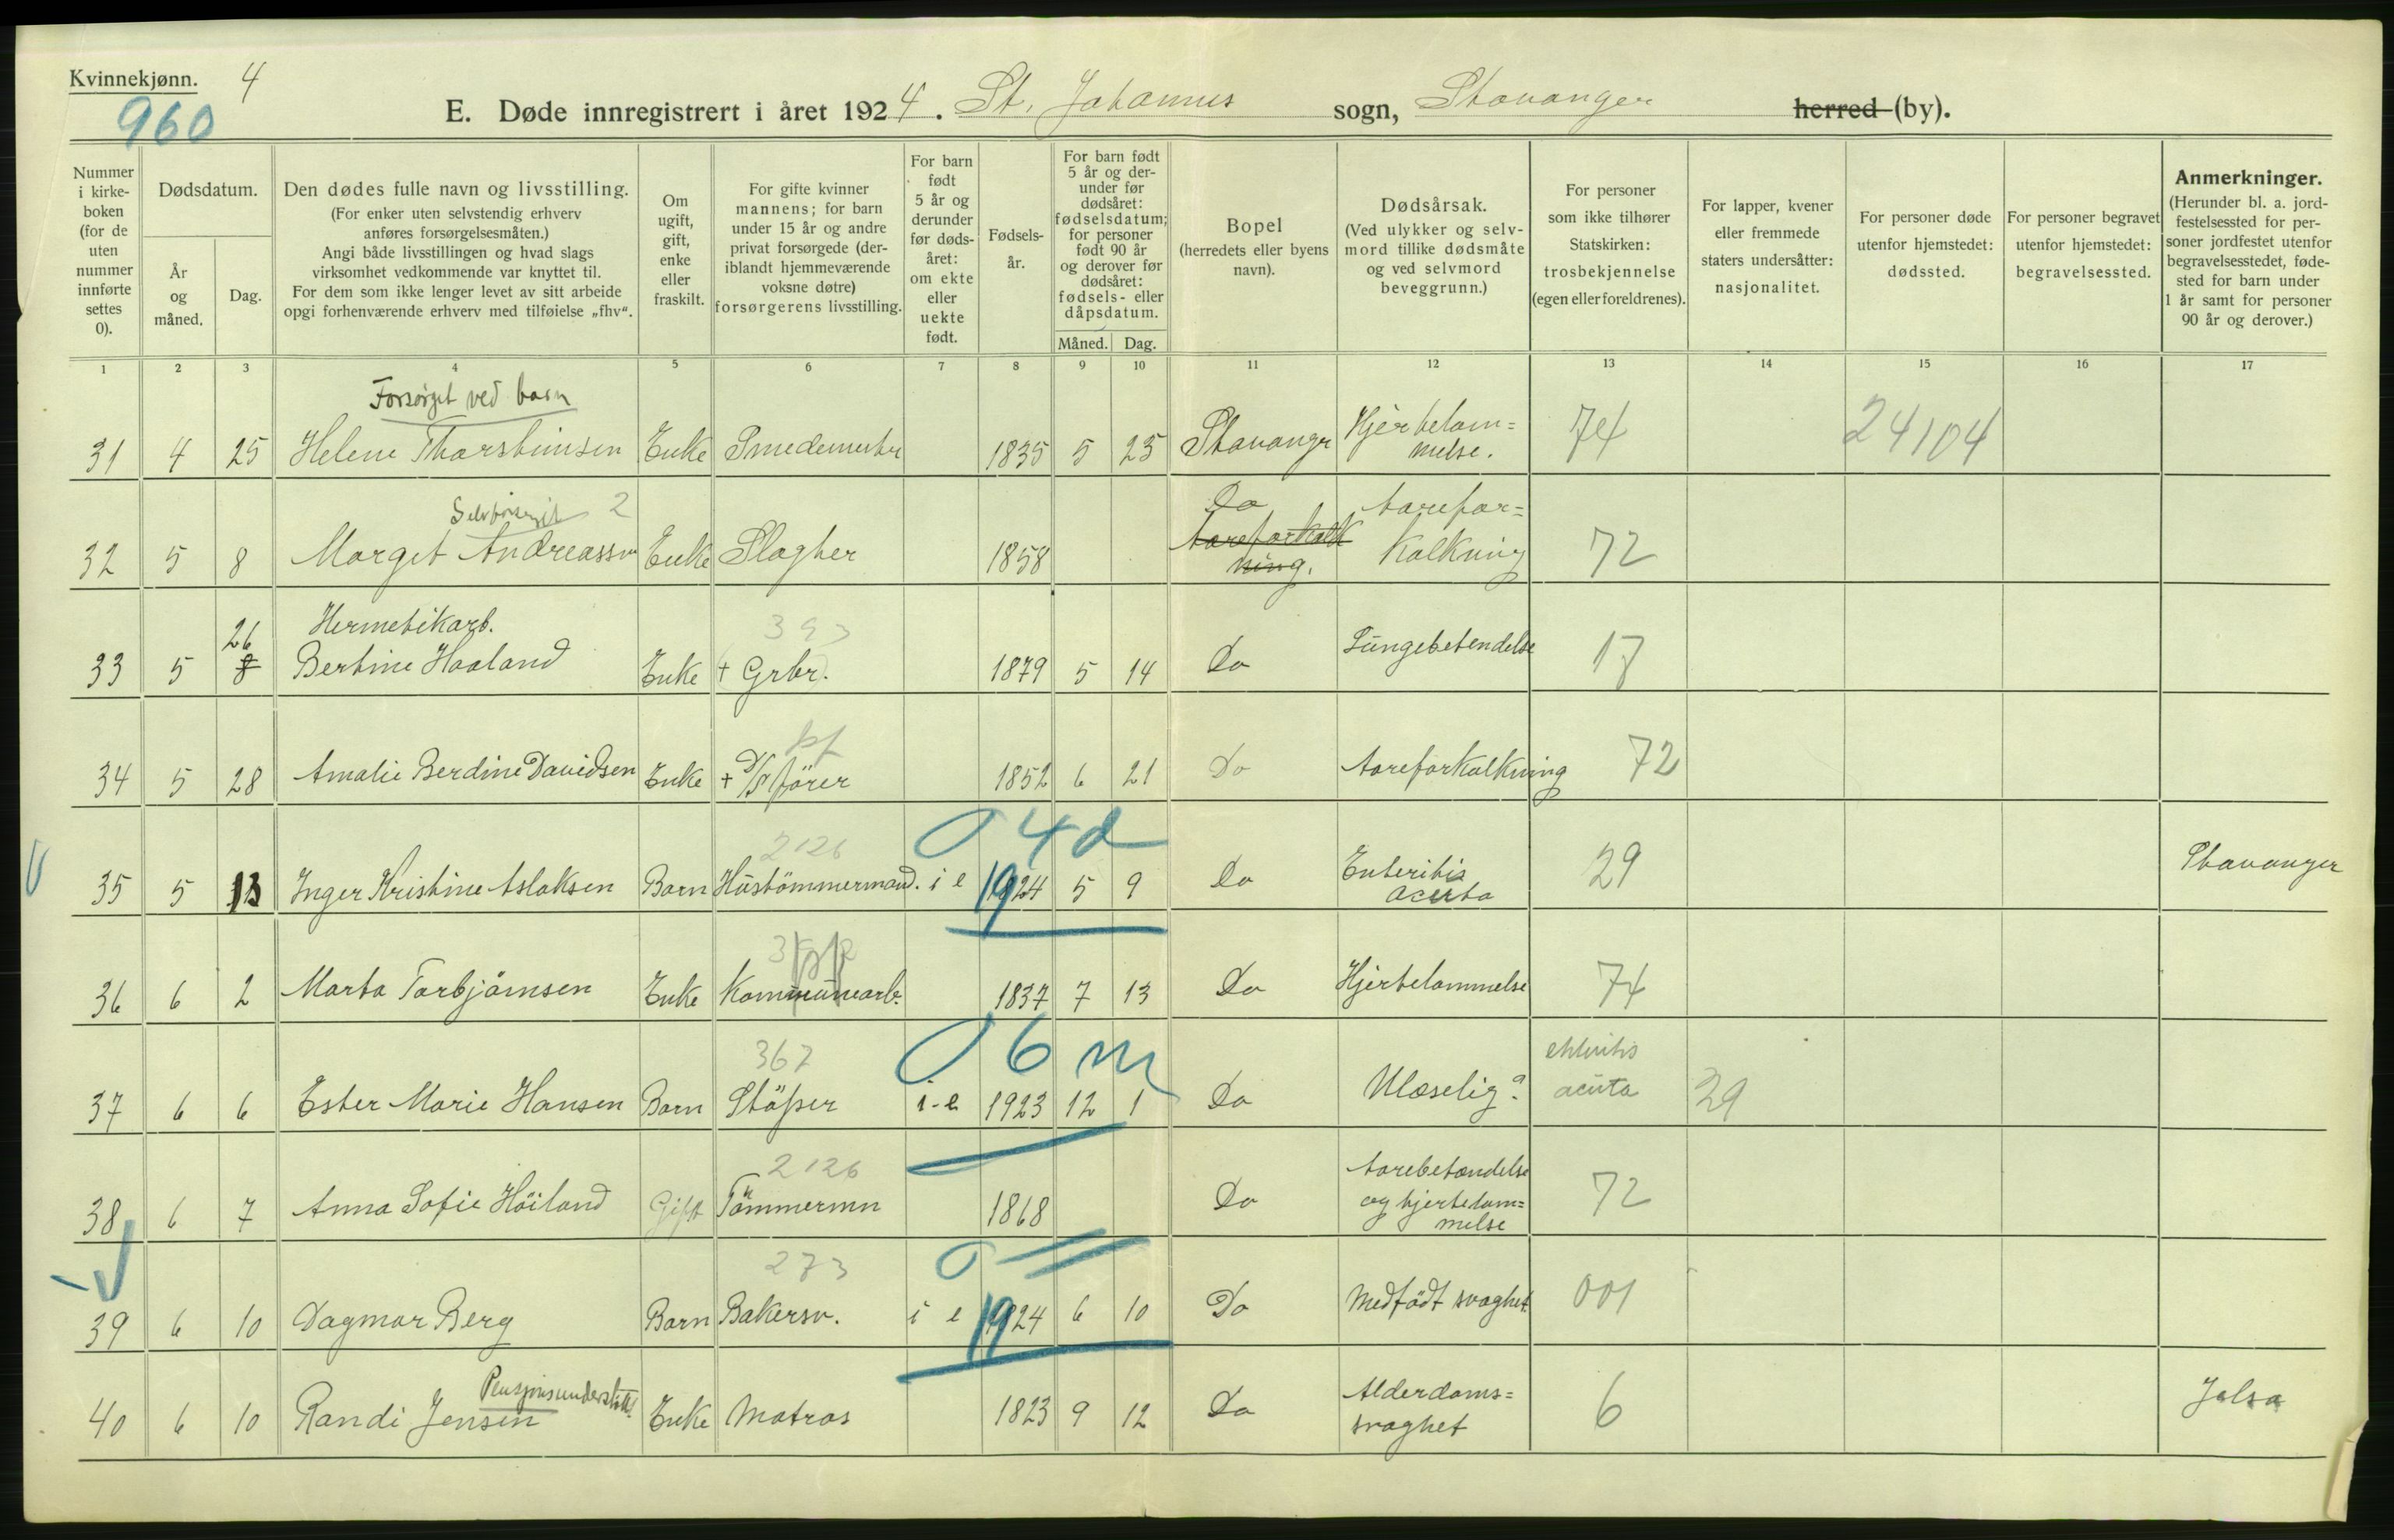 Kvinnekjønn. 4
960
E. Døde innregistrert i året 1924. St. Johannes sogn, Stavanger herred (by).
Nummer i kirke-boken (for de uten nummer innførte settes 0).
Dødsdatum.
År og måned.
Dag.
Den dødes fulle navn og livsstilling.
(For enker uten selvstendig erhverv anføres forsørgelsesmåten.)
Angi både livsstillingen og hvad slags virksomhet vedkommende var knyttet til.
For dem som ikke lenger levet av sitt arbeide opgi forhenværende erhverv med tilføielse „fhv“.
Om ugift, gift, enke eller fraskilt.
For gifte kvinner mannens; for barn under 15 år og andre privat forsørgede (deriblandt hjemmeværende voksne døtre) forsørgerens livsstilling.
For barn født 5 år og derunder før dødsåret: om ekte eller uekte født.
Fødsels-år.
For barn født 5 år og derunder før dødsåret: fødselsdatum; for personer født 90 år og derover før dødsåret: fødsels- eller dåpsdatum.
Måned. Dag.
Bopel (herredets eller byens navn).
Dødsårsak. (Ved ulykker og selvmord tillike dødsmåte og ved selvmord beveggrunn.)
For personer som ikke tilhører Statskirken: trosbekjennelse (egen eller foreldrenes).
For lapper, kvener eller fremmede staters undersåtter: nasjonalitet.
For personer døde utenfor hjemstedet: dødssted.
For personer begravet utenfor hjemstedet: begravelsessted.
Anmerkninger. (Herunder bl. a. jordfestelsessted for personer jordfestet utenfor begravelsesstedet, fødested for barn under 1 år samt for personer 90 år og derover.)
1 2 3 4 5 6 7 8 9 10 11 12 13 14 15 16 17
Forsørget ved barn
31 4 25 Helene Thorsteinsen Enke Smedemester 1835 5 23 Stavanger Hjertelam=melse. 74 24104
Selvforsørget 2
32 5 8 Marget Andreassen Enke Slagter 1858 Do Aareforkalkning. Aarefor=kalkning 72
Hermetikarb. 393
33 5 8 26 Bertine Haaland Enke + Grbr. 1879 5 14 Do Lungebetendelse 17
34 5 28 Amalie Berdine Davidsen Enke + D/S fører 1852 6 21 Do Aareforkalkning 72
2126 0 4 d
35 5 13 Inger Kristine Aslaksen Barn Hustømmermand. i e 1924 5 9 Do Enteritis acuta 29 Stavanger
36 6 2 Marta Torbjørnsen Enke Kommunearb. 1837 7 13 Do Hjertelammelse 74
367 0 6 m
37 6 6 Ester Marie Hansen Barn Støper i-e 1923 12 1 Do Ulæselig? enteritis acuta 29
2126
38 6 7 Anna Sofie Höiland Gift Tømmermn 1868 Do Aarebetændelse og hjertelam=melse 72
273 0
39 6 10 Dagmar Berg Barn Bakersv. i e 1924 6 10 Do Medfødt svaghet 001
Pensjonsunderstött.
40 6 10 Randi Jensen Enke Matros 1823 9 12 Do Alderdoms=svaghet 6 Jelsa